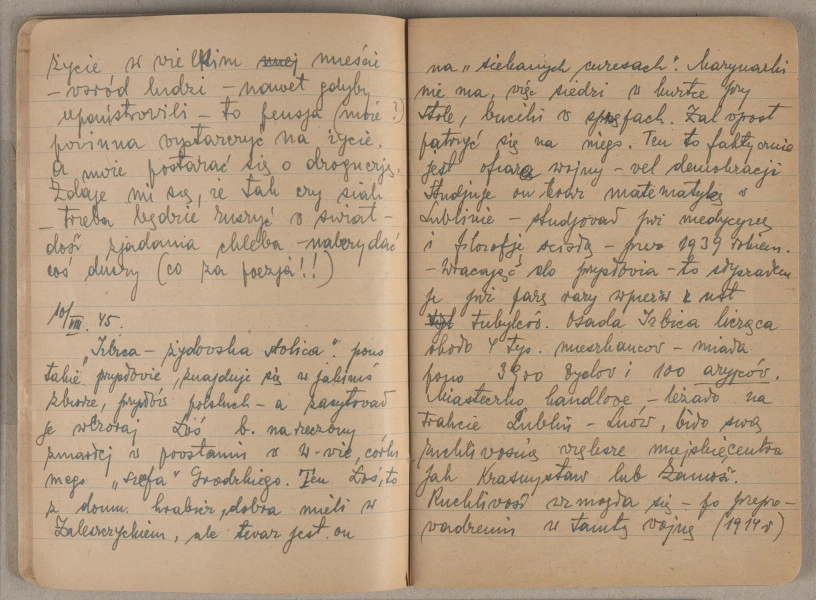 życie, w wielkim mieście
– wśród ludzi – nawet gdyby
upaństwowili – to pensja (moje?)
powinna wystarczyć na życie.
a może postarać się o drogerję.
Zdaje mi się, że tak czy siak
– trzeba będzie ruszyć w świat –
dość zjadania chleba – nabrydać
coś duszy (co za poezja!!)
10/VIII. 45.
„Izbica – żydowska stolica”. pono
takie przysłowie, znajduje się w jakimś
zbiorze, przysłów polskich – a zacytował
je wczoraj Łoś b. narzeczony
zmarłej w powstaniu w W-wie, córki
mego „szefa” Grodzkiego. Ten Łoś, to
z domu hrabia, dobra mieli w
Zaleszczykiem, ale teraz jest on
na „siekanych curesach”. Marynarki
nie ma, więc siedzi w kurtce przy
stole, buciki w szpagach. Żal wprost
patrzyć się na niego. Ten to faktycznie
jest ofiarą wojny – vel demokracji
Studjuje on teraz matematykę w
Lublinie – studjował już medycynę
i filozofję ścisłą – przed 1939 rokiem.
– Wracając do przysłowia – to słyszałem
je już parę razy wpierw z ust
tubylców. Osada Izbica licząca
około 4 tys. mieszkańców – miała
pono 3900 żydów i 100 aryjców.
Miasteczko handlowe – leżało na
trakcie Lublin – Lwów, biło swą
ruchliwością większe miejskie centra
jak Krasnystaw lub Zamość.
Ruchliwość wzmogła się – po przepro-
wadzeniu w tamtą wojnę (1914 r)